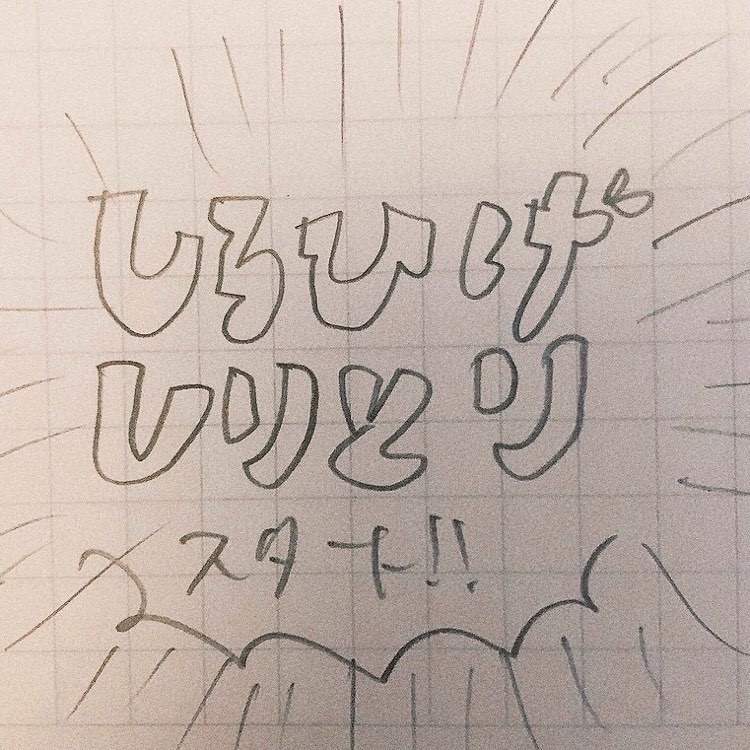 しろひげ
しりとり
スタート!!